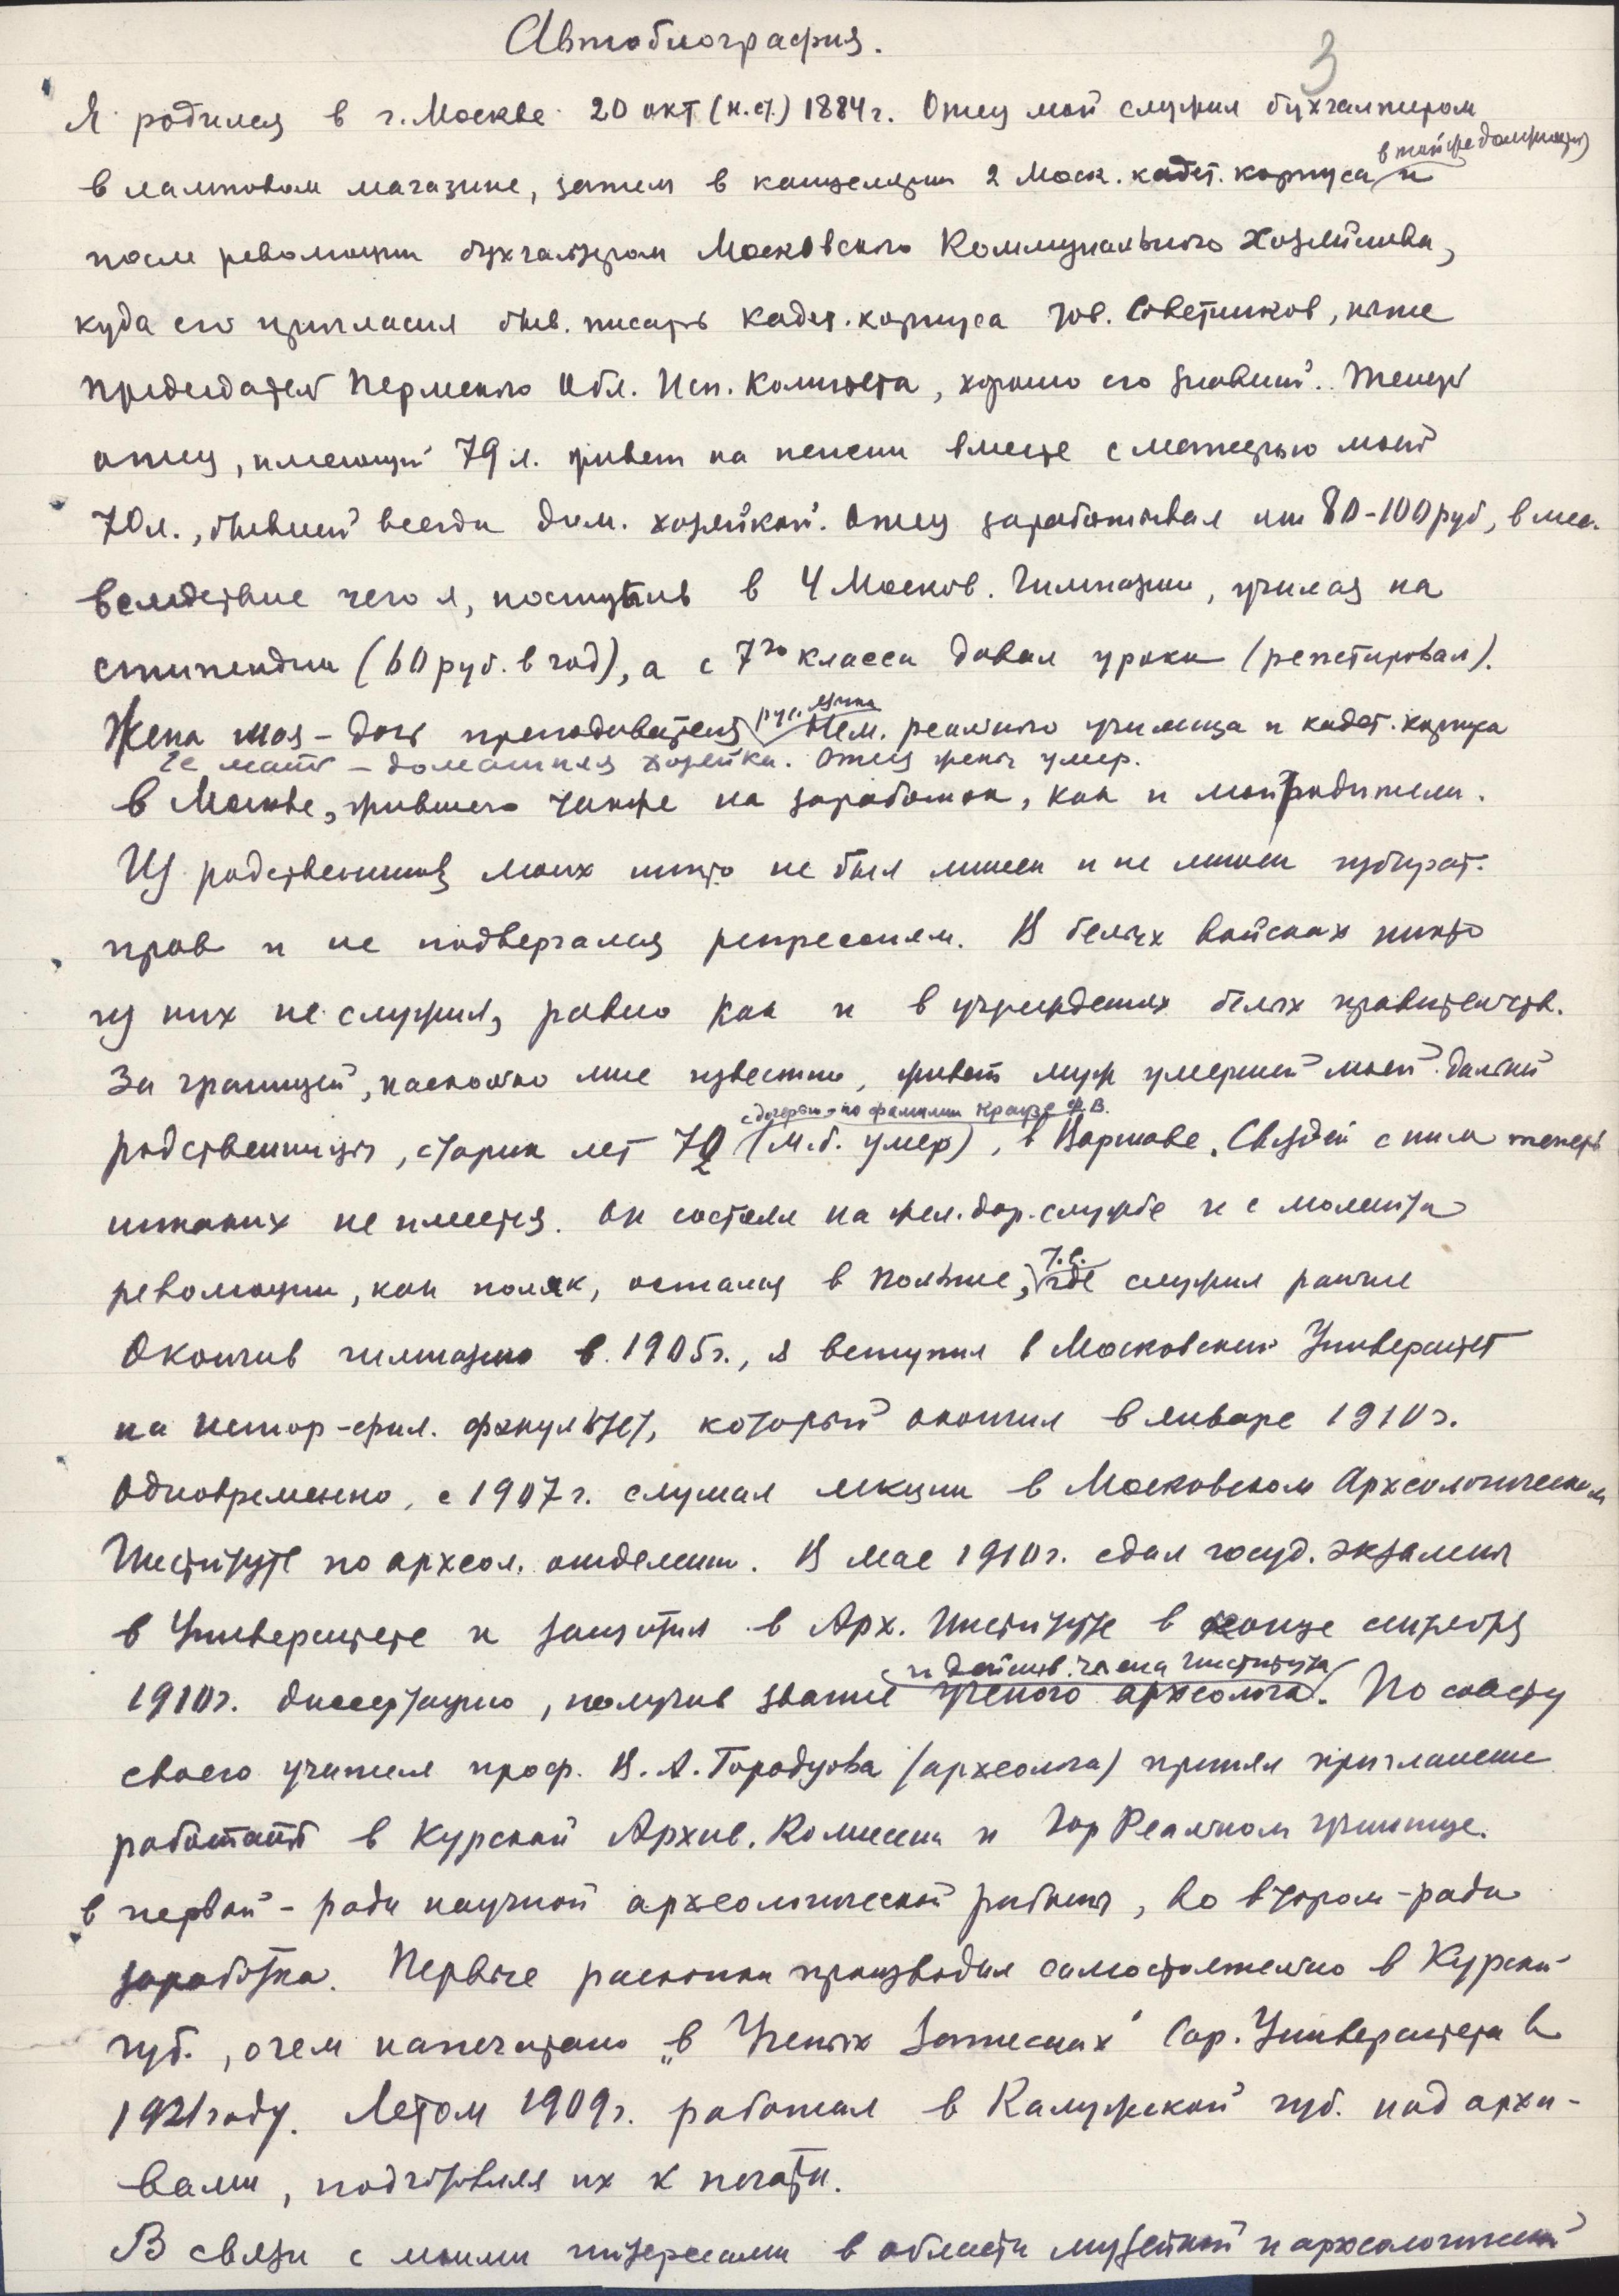 Автобиография.
3
Я родился в г. Москве 20 окт (н.с.) 1884 г. Отец мой служил бухгалтером
в той же должности
в ламповом магазине, затем в канцелярии 2 Моск. кадет. корпуса и
после революции бухгалтером Московского Коммунального Хозяйства,
куда его пригласил быв. писарь кадет. корпуса тов. Советников, ныне
председатель Пермского Обл. Исп. Комитета, хорошо его знавший. Теперь
отец, имеющий 79 л. живет на пенсии вместе с матерью моей
70 л., бывшей всегда дом. хозяйкой. Отец зарабатывал от 80-100 руб, в мес.
вследствие чего я, поступив в 4 Москов. Гимназию, учился на
стипендии (60 руб. в год), а с 7го класса давал уроки (репетировал).
рус. языка
Жена моя – дочь преподавателя Нем. реального училища и кадет. корпуса
Ее мать – домашняя хозяйка. Отец жены умер.
в Москве, жившего также на заработок, как и мои родители.
Из родственников моих никто не был лишен и не лишен избират.
прав и не подвергался репрессиям. В белых войсках никто
из них не служил, равно как и в учреждениях белых правительств.
За границей, насколько мне известно, живет муж умершей моей дальней
с дочерью, по фамилии Краузе Ф.В.
родственницы, старик лет 72 (м.б. умер), в Варшаве. Связей с ним теперь
никаких не имеется. Он состоял на жел. дор. службе и с момента
т.е.
революции, как поляк, остался в Польше, где служил раньше
Окончив гимназию в 1905 г., я вступил в Московский Университет
на истор-фил. факультет, который окончил в январе 1910 г.
Одновременно, с 1907 г. слушал лекции в Московском Археологическом
Институте по археол. отделению. В мае 1910 г. сдал госуд. экзамены
в Университете и защитил в Арх. Институте в конце сентября
и действ. члена Института
1910 г. диссертацию, получив звание ученого археолога. По совету
своего учителя проф. В. А. Городцова (археолога) принял приглашение
работать в Курской Архив. Комиссии и Гор Реальном училище.
в первой – ради научной археологической работы, во втором – ради
заработка. Первые раскопки производил самостоятельно в Курской
губ., о чем напечатано „в Ученых Записках" Сар. Университета в
1921 году. Летом 1909 г. работал в Калужской губ. над архи-
вами, подготовляя их к печати.
В связи с моими интересами в области музейной и археологической